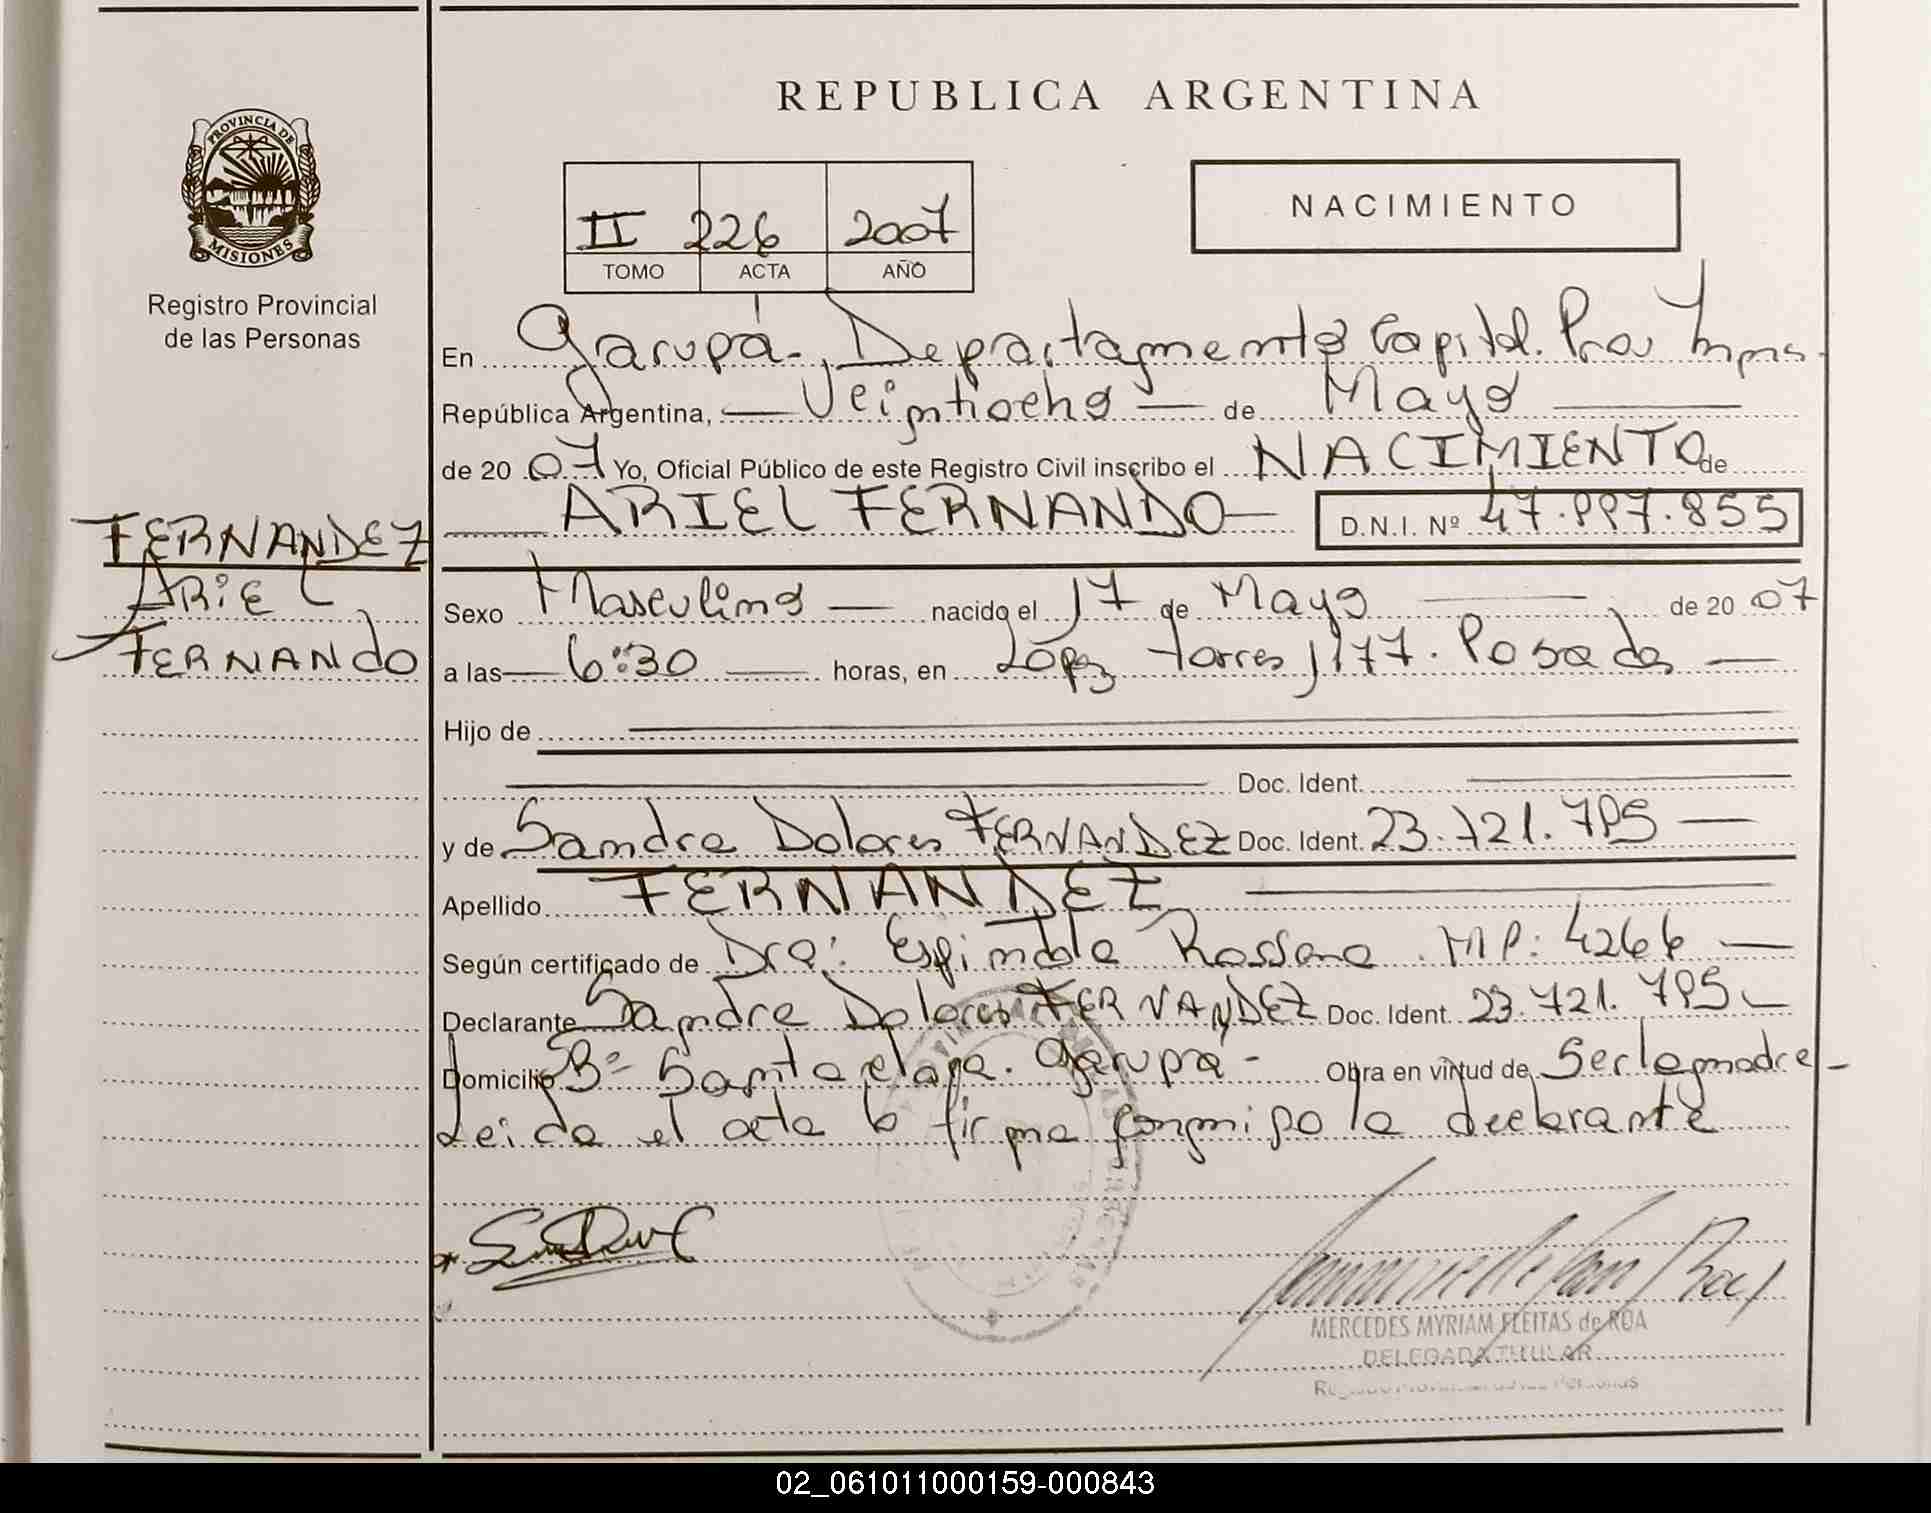 PROVINCIA DE
MISIONES
Registro Provincial
de las Personas
FERNANDEZ
ARIEL
FERNANDO
REPUBLICA ARGENTINA
II 226 2007
TOMO ACTA AÑO
NACIMIENTO
En Garupá - Departamento Capital. Prov
República Argentina, Veintiocho de Mayo
de 20 07 Yo, Oficial Público de este Registro Civil inscribo el NACIMIENTO de
ARIEL FERNANDO D.N.I. Nº 47.997.855
Sexo Masculino nacido el 17 de Mayo de 20 07
a las 6:30 horas, en López torres 1177. Posadas
Hijo de
Doc. Ident.
y de Sandra Dolores FERNANDEZ Doc. Ident. 23.721.795
Apellido FERNANDEZ
Según certificado de Dra: Espindola Rossana. MP: 4266
Declarante Sandra Dolores FERNANDEZ Doc. Ident. 23.721.795
Domicilio Bº Santa Garupá - Obra en virtud de Ser la madre -
Leida el acta la firma conmigo la declarante
MERCEDES MYRIAM FLEITAS de ROA
DELEGADA TITULAR
02_061011000159-000843